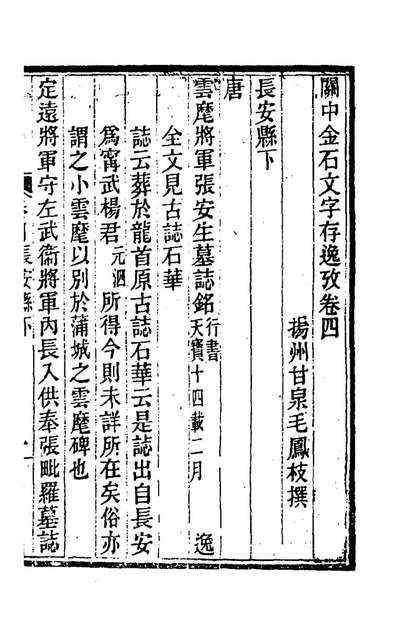 關中金石文字存逸攷卷四
揚州甘泉毛鳳枝撰
長安縣下
唐
雲麾將軍張安生墓誌銘 行書 天寶十四載二月 逸
全文見古誌石華
誌云葬於龍首原古誌石華云是誌出自長安
爲甯武楊君 元泗 所得今則未詳所在矣俗亦
謂之小雲麾以別於蒲城之雲麾碑也
定遠將軍守左武衞將軍內長入供奉張毗羅墓誌
長安縣下